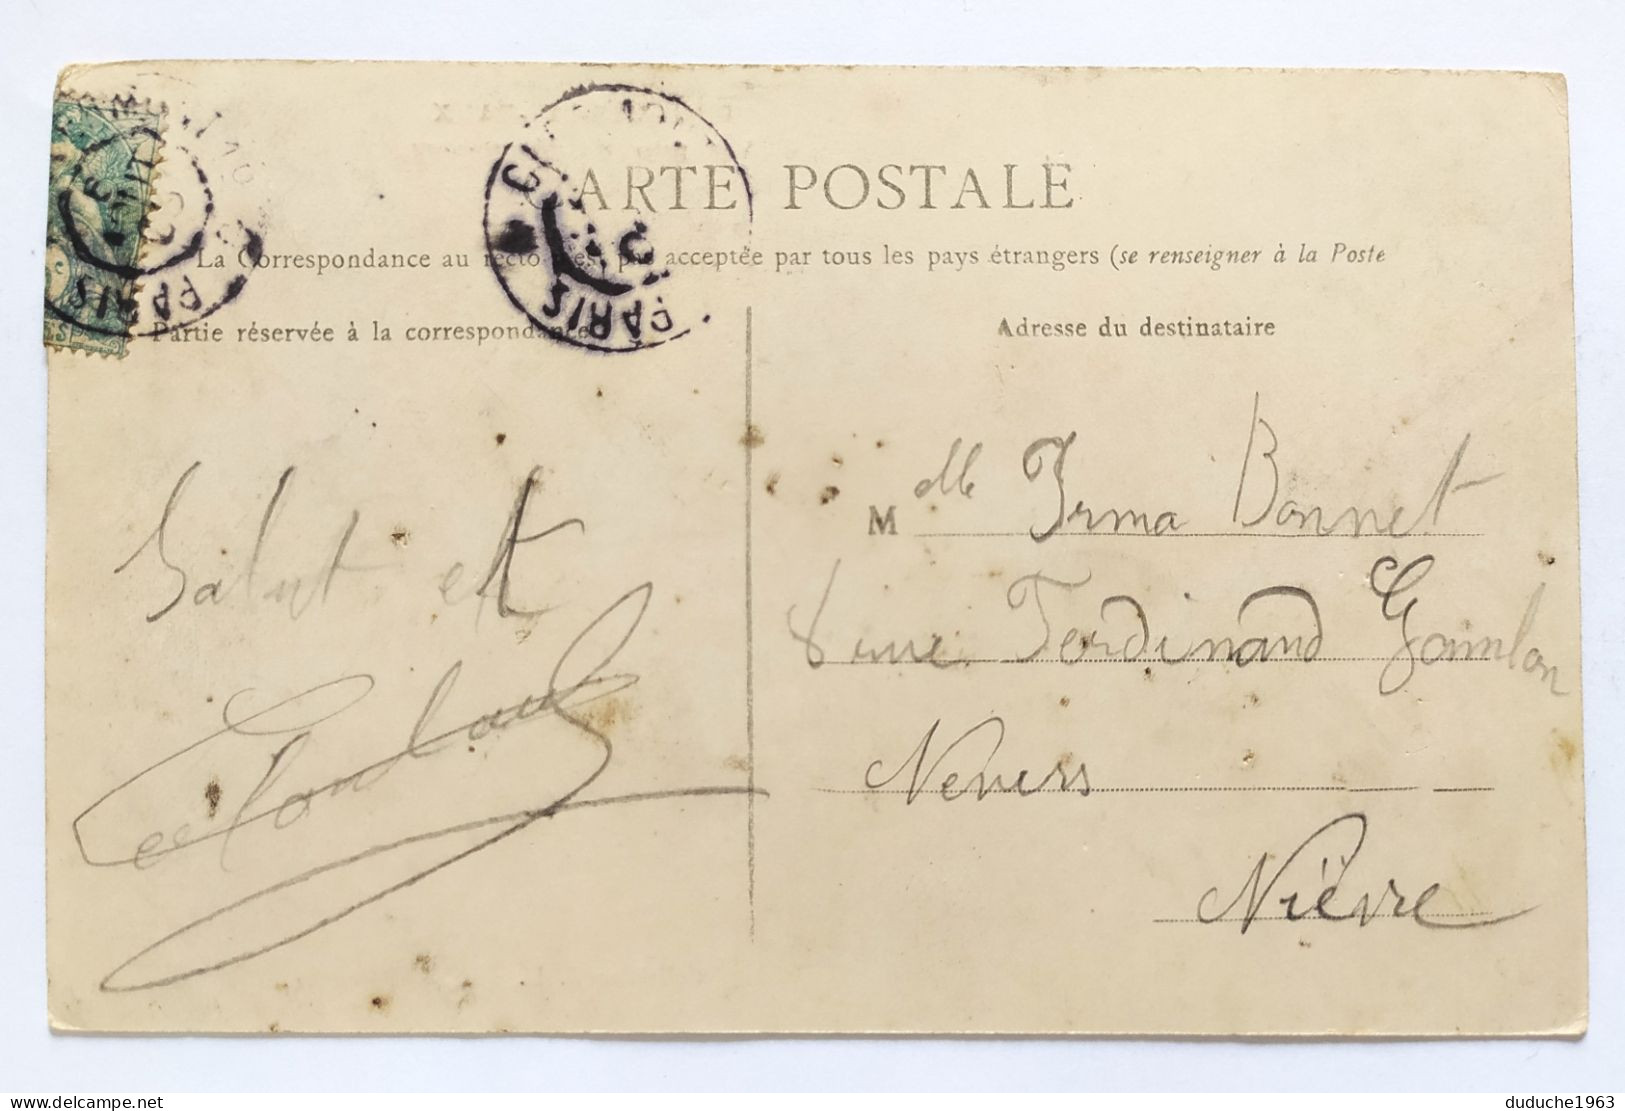 CARTE POSTALE
La Correspondance au recto pas acceptée par tous les pays étrangers (se renseigner à la Poste
Partie réservée à la correspondance
Adresse du destinataire
PARIS
PARIS
Salut et
M elle Irma Bonnet
8 rue Ferdinand Gambon
Nevers
Nièvre
delcampe.net
duduche1963